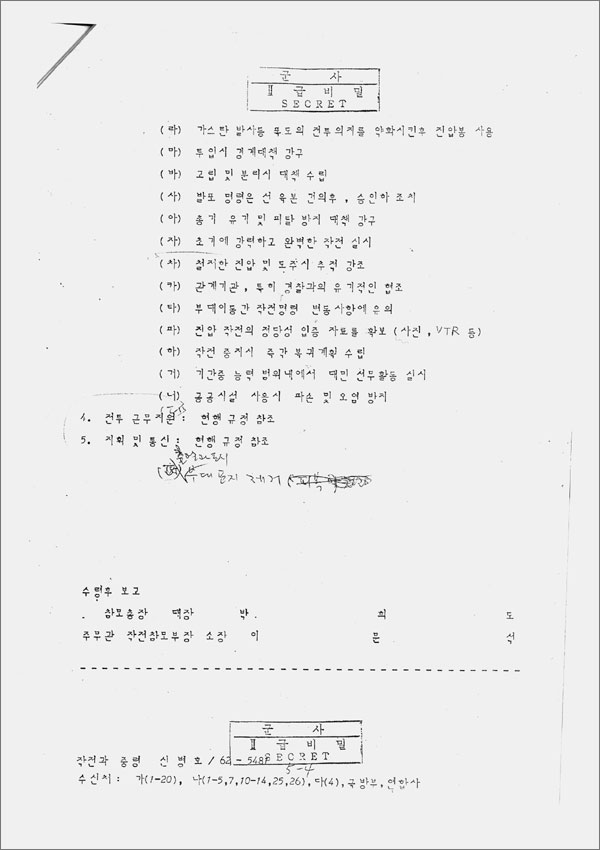 군 사
Ⅱ 급 비 밀
SECRET
(라) 가스탄 발사등 폭도의 전투의지를 약화시킨후 진압봉 사용
(마) 투입시 경계대책 강구
(바) 고립 및 분리시 대책 수립
(사) 발포 명령은 선 육본 건의후, 승인하 조치
(아) 총기 유기 및 피탈 방지 대책 강구
(자) 초기에 강력하고 완벽한 작전 실시
(차) 철저한 진압 및 도주시 추적 강조
(카) 관계기관, 특히 경찰과의 유기적인 협조
(타) 부대이동간 작전명령 변동사항에 유의
(파) 진압 작전의 정당성 입증 자료를 확보 (사진, VTR 등)
(하) 작전 중지시 즉각 복귀계획 수립
(거) 기간중 능력 범위내에서 대민 선무활동 실시
(너) 공공시설 사용시 파손 및 오염 방지
4. 전투 근무지원: 현행 규정 참조
5. 지휘 및 통신: 현행 규정 참조
부대표지 제거
수령후 보고
참모총장 대장 박 희 도
주무관 작전참모부장 소장 이 문 석
군 사
Ⅱ 급 비 밀
SECRET
작전과 중령 신병호/62-548
5-4
수신처: 가(1-20), 나(1-5,7,10-14,25,26), 다(4), 국방부, 연합사